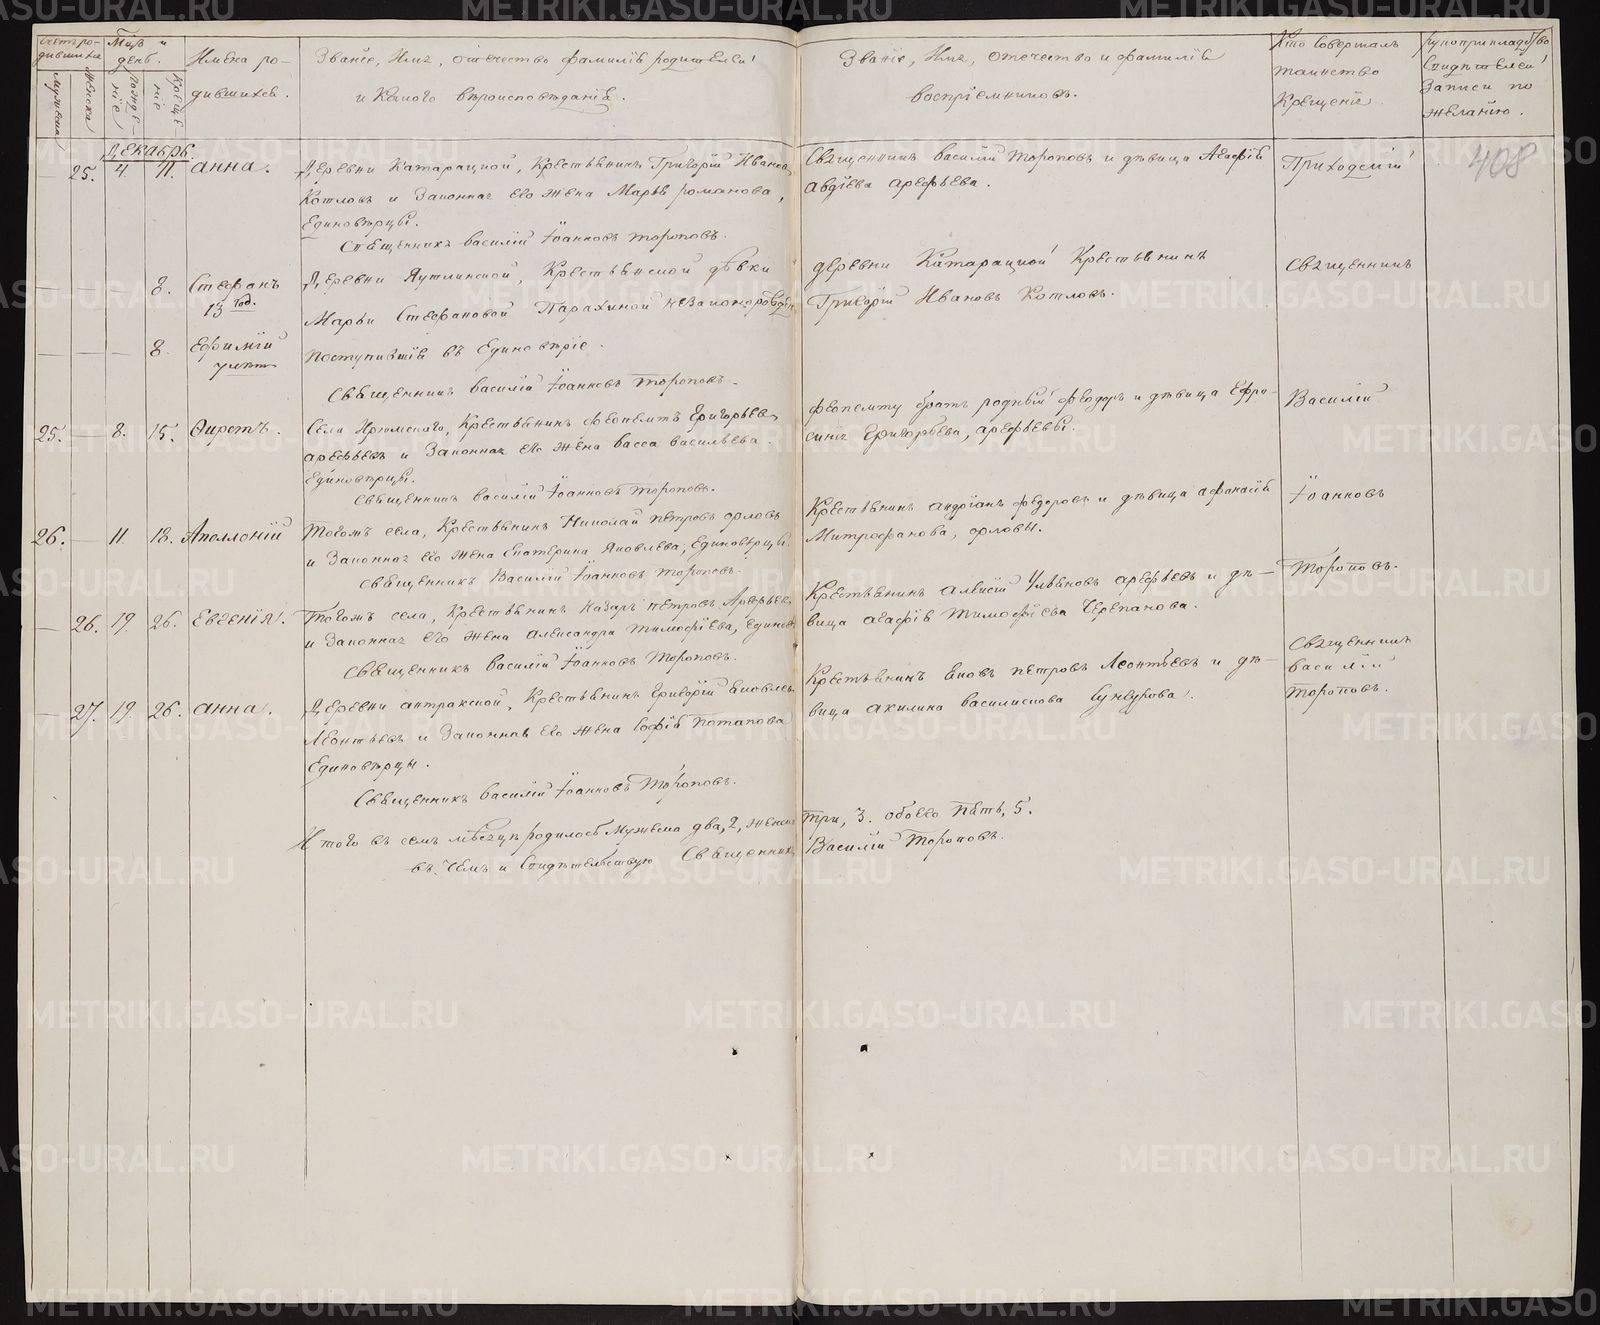 Счетъ родившихся
Мужеска
Женска
Мѣс. и день.
Рождение
Крещение
Имена родившихся.
Званіе, Имя, отчество фамилія родителей
и Какого вѣроисповѣданія.
Званіе, Имя, отечество и фамилія
воспріемниковъ.
Кто Совершалъ
таинство
Крещенія
рукоприкладство
Свидѣтелей
Записи по
желанію.
408
Декабрь.
25. 4. 11. Анна.
Деревни Катарацкой, Крестьянинъ Григорій Ивановъ
Котловъ и Законная его жена Марья романова,
Единовѣрцы.
Священникъ василій Іоанновъ тороповъ.
Священникъ василій тороповъ и дѣвица Агафія
авдіева арефьева.
Приходскій
8. Стефанъ
13 год.
Деревни Яутлинской, Крестьянской дѣвки
Марьи Стефановой Парахиной незаконорожден
деревни Катарацкой Крестьянинъ
Григорій Ивановъ Котловъ.
Священникъ
8. Ефимій
поступившія въ Единовѣріе.
Священникъ василій Іоанновъ тороповъ.
25. 8. 15. Фирстъ.
Села Ирюмскаго, Крестьянинъ Феопемтъ Григорьевъ
арефьевъ и Законная его жена васса васильева.
Единовѣрцы.
Священникъ василій Іоанновъ тороповъ.
феопемту братъ родный феодоръ и дѣвица Ефро-
синія Григорьева, арефьевы.
Василій
26. 11. 18. Аполлоній
Тогожъ села, Крестьянинъ Николай петровъ орловъ
и Законная его жена Екатерина Яковлева, Единовѣрцы.
Священникъ Василій Іоанновъ тороповъ.
Крестьянинъ андріанъ федоровъ и дѣвица афанасія
Митрофанова, орловы.
Іоанновъ
26. 19. 26. Евгенія.
Тогожъ села, Крестьянинъ Назаръ петровъ Арефьевъ
и Законная его жена александра тимофіева, единов
Священникъ василій Іоанновъ тороповъ.
Крестьянинъ алексій Ульяновъ арефьевъ и дѣ-
вица агафія тимофіева Черепанова.
Тороповъ.
27. 19. 26. анна.
Деревни антракской, Крестьянинъ Григорій яковлевъ
Леонтьевъ и Законная его жена Софія потапова
Единовѣрцы.
Священникъ василій Іоанновъ тороповъ.
Крестьянинъ яковъ петровъ Леонтьевъ и дѣ-
вица акилина василискова Сунгурова.
Священникъ
василій
тороповъ.
Итого въ семъ мѣсяцѣ родилось Мужеска два, 2, женска три, 3. обоего пять, 5.
въ чемъ и Свидѣтельствую Священникъ Василій тороповъ.
METRIKI.GASO-URAL.RU